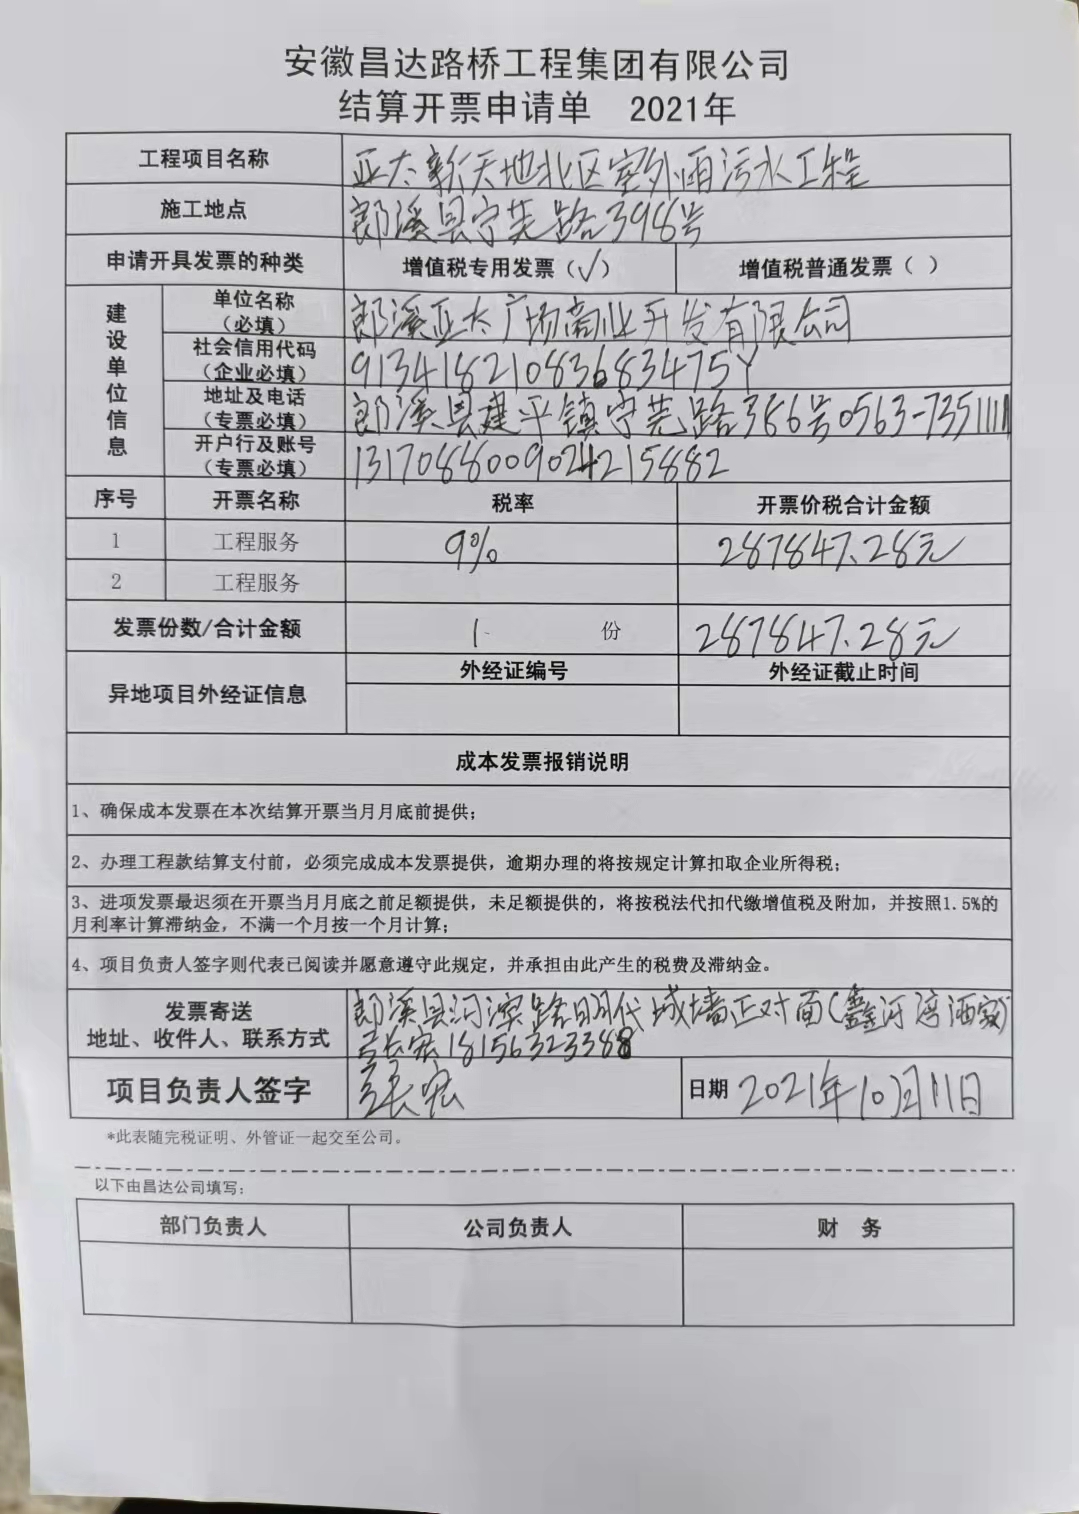 安徽昌达路桥工程集团有限公司
结算开票申请单 2021年
工程项目名称 亚太新天地北区室外雨污水工程
施工地点 郎溪县宁芜路398号
申请开具发票的种类 增值税专用发票(√) 增值税普通发票( )
建设单位信息
单位名称(必填) 郎溪亚太广场商业开发有限公司
社会信用代码(企业必填) 91341821083683475Y
地址及电话(专票必填) 郎溪县建平镇宁芜路366号0563-7351111
开户行及账号(专票必填) 1317088009024215882
序号 开票名称 税率 开票价税合计金额
1 工程服务 9% 287847.28元
2 工程服务
发票份数/合计金额 1 份 287847.28元
异地项目外经证信息 外经证编号 外经证截止时间
成本发票报销说明
1、确保成本发票在本次结算开票当月月底前提供；
2、办理工程款结算支付前，必须完成成本发票提供，逾期办理的将按规定计算扣取企业所得税；
3、进项发票最迟须在开票当月月底之前足额提供，未足额提供的，将按税法代扣代缴增值税及附加，并按照1.5%的
月利率计算滞纳金，不满一个月按一个月计算；
4、项目负责人签字则代表已阅读并愿意遵守此规定，并承担由此产生的税费及滞纳金。
发票寄送 郎溪县河滨路明代城墙正对面(鑫河湾酒家)
地址、收件人、联系方式 长宏 18156323388
项目负责人签字 长宏 日期 2021年10月11日
*此表随完税证明、外管证一起交至公司。
以下由昌达公司填写：
部门负责人 公司负责人 财 务